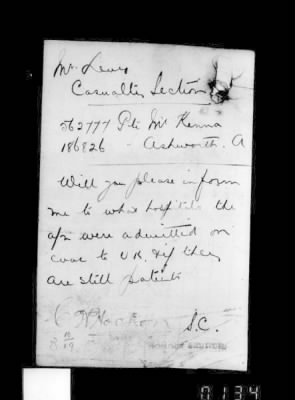 Mr. Lewis
Casualties Section
562777 Pte McKenna
186826 - Ashworth. A
Will you please inform
me to what hospitals the
a/n were admitted on
evac to U.K. & if they
are still patients
S.C.
0134